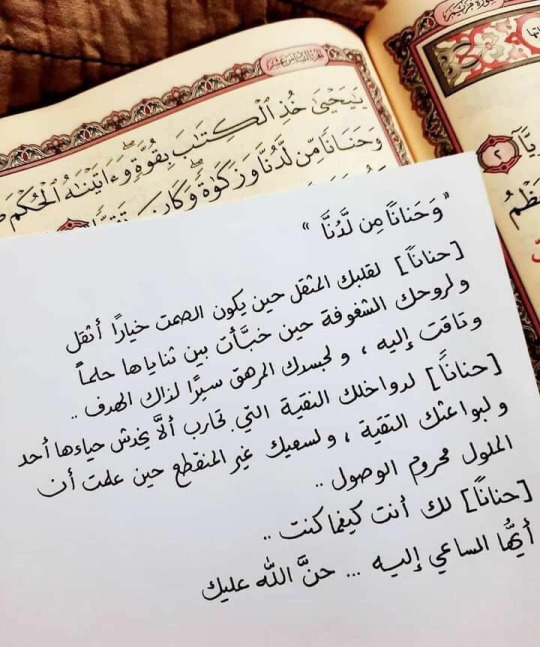 الجزء السادس عشر
يَـٰيَحْيَىٰ خُذِ ٱلْكِتَـٰبَ بِقُوَّةٍ وَءَاتَيْنَـٰهُ ٱلْحُكْمَ
وَحَنَانًا مِّن لَّدُنَّا وَزَكَوٰةً وَكَانَ تَقِيًّا
سورة مريم
٢
"وَحَنانًا مِن لَّدُنَّا"
[حنانًا] لقلبك المثقل حين يكون الصمت خيارًا أثقل
ولروحك الشغوفة حين خبَّأت بين ثناياها حلماً
وتاقت إليه ، ولجسدك المرهق سيرًا لذاك الهدف ..
[حنانًا] لدواخلك النقية التي تحارب ألَّا يخدش حياءها أحد
ولبواعثك النقية ، ولسعيك غير المنقطع حين علمت أن
الملول محروم الوصول ..
[حنانًا] لك أنت كيفما كنت ..
أيُّها الساعي إليه ... حنَّ اللّٰه عليك